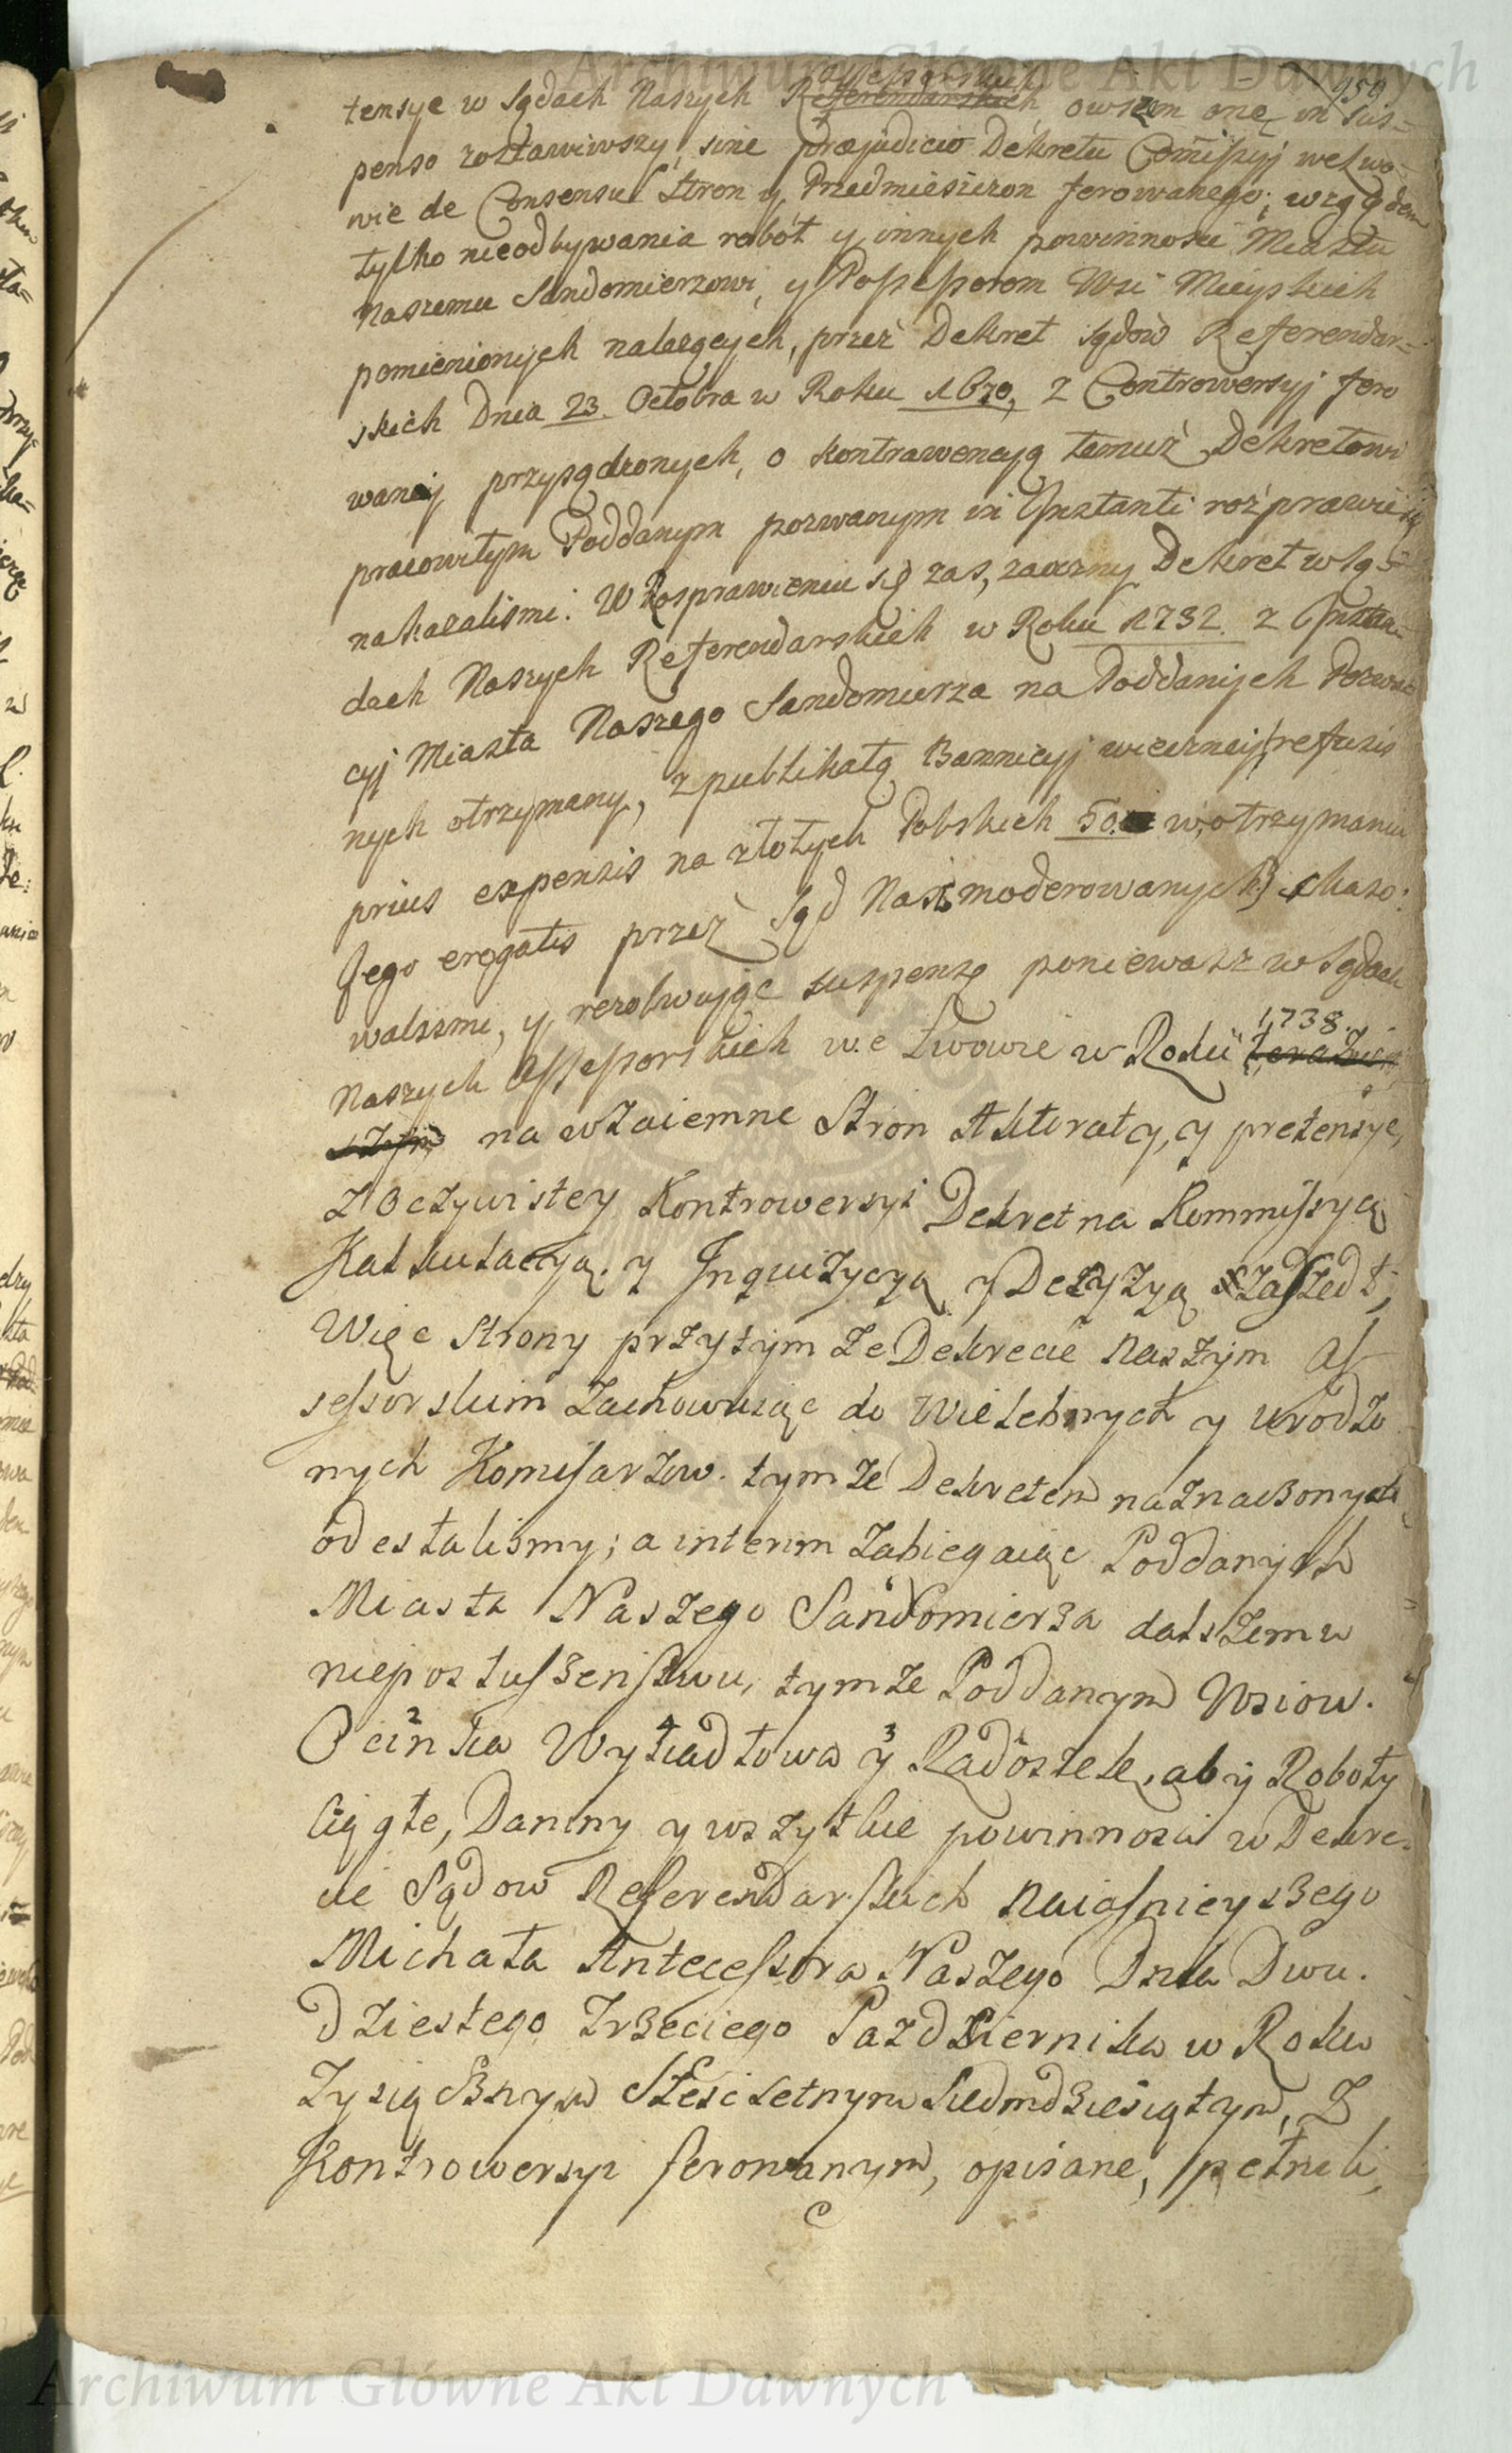 Archiwum Główne Akt Dawnych
959
assessorskich
tensye w Sądach Naszych Referendarskich, owszem one in sus=
penso zostawiwszy, sine præjudicio Dekretu Comissyj we Lwo-
wie de Consensu Stron y Przedmieszczon ferowanego; względem
tylko nieodbywania robót y innych powinności Miastu
Naszemu Sandomierzowi, y Possessorom Wsi Mieyskich
pomienionych należących, przez Dekret Sądów Referendar=
skich Dnia 23. Octobra w Roku 1670, z Controwersyj fero
waney przysądzonych, o kontrawencyą temuż Dekretowi
pracowitym Poddanym pozwanym in Instanti rozprawić się
nakazalismi. W Rosprawieniu się zas, zaoczny Dekret w Są=
dach Naszych Referendarskich w Roku 1732. z Instan=
cyj Miasta Naszego Sandomierza na Poddanych Pozwa
nych otrzymany, z publikatą Bannicyj wieczney, refusis
prius expensis na złotych Polskich 50. w otrzymaniu
Jego erogatis przez Sąd Nasz moderowanych, skaso:
walismi, y rezolwując suspensę poniewasz w Sądach
1738.
Naszych Assessorskich we Lwowie w Roku terazniey
szym na wzaiemne Stron Aktoraty, y pretensye,
z Oczywistey Kontrowersyi Dekret na Kommissyą
Kalkulacyą. y Inquizycyą y Decyzyą zaszedł;
Więc Strony przytym ze Dekrecie Naszym As
sessorskim zachowuiąc do Wielebnych y urodzo
nych Komisarzow. tym ze Dekretem naznaczonych
odesłalismy; a interim zabiegaiąc Poddanych
Miasta Naszego Sandomierza dalszemu
nieposłuszenstwu, tymze Poddanym Wsiow.
2 4 3
Ocinka Wysiadłowa y Radoszek, aby Roboty
Ciągłe, Daniny y wszytkie powinnosci w Dekre-
cie Sądow Referendarskich Naiasnieyszego
Michała Antecessora Naszego Dnia Dwu.
dziestego Trzeciego Pazdziernika w Roku
Tysiącznym Szescsetnym Siedmdziesiątym, Z
Kontrowersyi ferowanym, opisane, pełnili,
Archiwum Główne Akt Dawnych